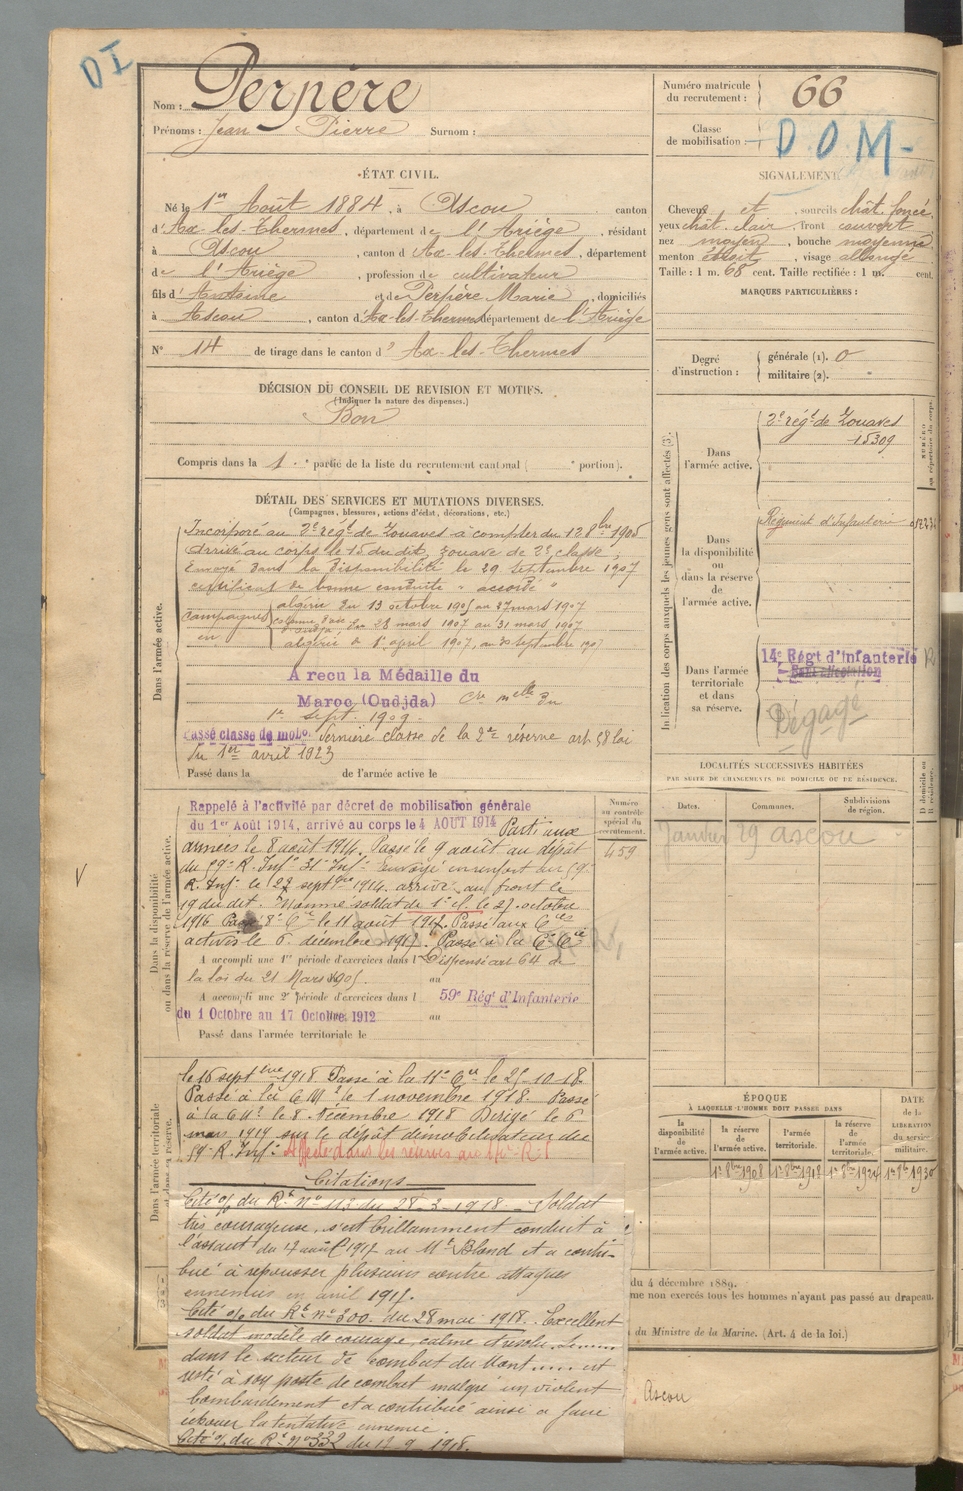 D I
Nom : Perpère
Prénoms : Jean Pierre Surnom :
Numéro matricule
du recrutement : 66
Classe
de mobilisation : D.O.M-
ÉTAT CIVIL.
Né le 1er Août 1884, à Ascou canton
d'Ax-les-Thermes, département de l'Ariège, résidant
à Ascou, canton d Ax-les-Thermes, département
de l'Ariège, profession de cultivateur
fils d'Antoine et de Perpère Marie, domiciliés
à Ascou, canton d'Ax-les-Thermes département de l'Ariège
N° 14 de tirage dans le canton d' Ax-les-Thermes
SIGNALEMENT
Cheveux et, sourcils chât. foncé
yeux chât. clair, front couvert
nez moyen, bouche moyenne
menton étroit, visage allongé
Taille : 1 m. 68 cent. Taille rectifiée : 1 m. cent.
MARQUES PARTICULIÈRES :
Degré
d'instruction :
générale (1). 0
militaire (2). "
DÉCISION DU CONSEIL DE REVISION ET MOTIFS.
(Indiquer la nature des dispenses.)
Bon
Compris dans la 1 partie de la liste du recrutement cantonal ( portion).
DÉTAIL DES SERVICES ET MUTATIONS DIVERSES.
(Campagnes, blessures, actions d'éclat, décorations, etc.)
Dans l'armée active.
Incorporé au 2e régt de Zouaves à compter du 12 8bre 1905
Arrivé au corps le 15 du dit, zouave de 2e classe ;
Envoyé dans la disponibilité le 29 Septembre 1907
certificat de bonne conduite " accordé "
Campagnes
en
algérie du 13 octobre 1905 au 27 mars 1907
du 28 mars 1907 au 31 mars 1907
algérie 1er april 1907, au 30 septembre 1907
A recu la Médaille du
Maroc (Oudjda)
1er sept. 1909.
Passé classe de mob. dernière classe de la 2e réserve art 58 loi
du 1er avril 1923
Passé dans la de l'armée active le
Indication des corps auxquels les jeunes gens sont affectés (3).
Dans
l'armée active.
2e régt de Zouaves
15309
Dans
la disponibilité
ou
dans la réserve
de
l'armée active.
Régiment d'Infanterie
Dans l'armée
territoriale
et dans
sa réserve.
14e Régt d'Infanterie
Dégagé
LOCALITÉS SUCCESSIVES HABITÉES
PAR SUITE DE CHANGEMENTS DE DOMICILE OU DE RÉSIDENCE.
Dates. Communes. Subdivisions
de région.
D domicile ou
R résidence.
Janvier 29 Ascou
Dans la disponibilité
ou dans la réserve de l'armée active.
Numéro
au contrôle
spécial du
recrutement.
459
Rappelé à l'activité par décret de mobilisation générale
du 1er Août 1914, arrivé au corps le 4 AOUT 1914 Parti aux
armées le 8 août 1914. Passé le 9 août au dépôt
du 59e R. Infie 31e Infie Envoyé en renfort du 59e
R. Inf. le 22 septbre 1914. arrivé au front le
19 du dit. Nommé soldat de 1e cl. le 27. octobre
1916 Passé 8e Cie le 11 août 1917. Passé aux Cies
actives le 6. décembre 1917. Passé à la Cie
A accompli une 1re période d'exercices dans l Dispensé art 64 de
la loi du 21 Mars 1905. au
A accompli une 2e période d'exercices dans l 59e Régt d'Infanterie
du 1 Octobre au 17 Octobre 1912 au
Passé dans l'armée territoriale le
Dans l'armée territoriale
et dans sa réserve.
le 16 septembre 1918. Passé à la 11e Cie le 25-10-18.
Passé à la C M 2 le 1 novembre 1918. Passé
à la C M 2 le 8. décembre 1918 Dirigé le 6
mars 1919 sur le dépôt démobilisateur du
59e R. Inf. Affecté dans les réserves au
Citations
Cité o/ du Rt. N° 113 du 28-3-1918. Soldat
très courageux, s'est brillamment conduit à
l'assaut du 17 août 1917 au Mt Blond et a contri-
bué à repousser plusieurs contre attaques
ennemies en avril 1917.
Cité o/ du Rt. n° 300. du 28 mai 1918. Excellent
soldat modèle de courage, calme
dans le secteur de combat du Mont ..... est
resté à son poste de combat malgré un violent
bombardement et a contribué ainsi à faire
échouer la tentative ennemie.
Cité o/ du Rt. N° 332 du 12.9.1918.
ÉPOQUE
À LAQUELLE L'HOMME DOIT PASSER DANS
la
disponibilité
de
l'armée active.
la réserve
de
l'armée active.
l'armée
territoriale.
la réserve
de
l'armée
territoriale.
DATE
de la
LIBÉRATION
du service
militaire.
1er 8bre 1908 1er 8bre 1918 1er 8bre 1924 1er 8bre 1930
du 4 décembre 1889.
me non exercés tous les hommes n'ayant pas passé au drapeau.
du Ministre de la Marine. (Art. 4 de la loi.)
Ascou